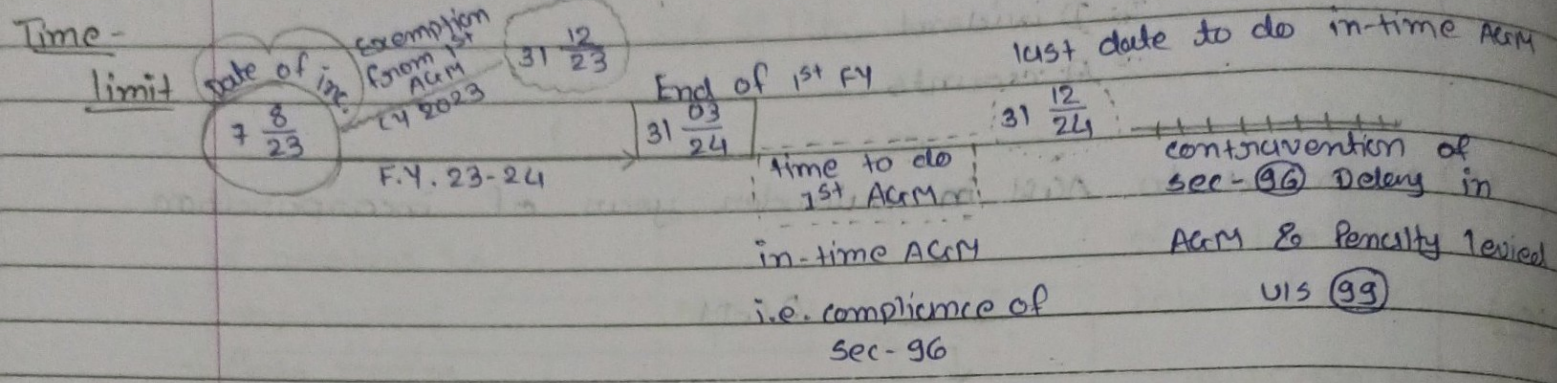 Time-
limit
Date of inc.
7 8/23
exemption
from 1st
AGM
CY 2023
31 12/23
F.Y. 23-24
End of 1st FY
31 03/24
time to do
1st AGM
in-time AGM
i.e. compliance of
sec-96
last date to do in-time AGM
31 12/24
contravention of
sec-96 Delay in
AGM & Penalty levied
U/S 99